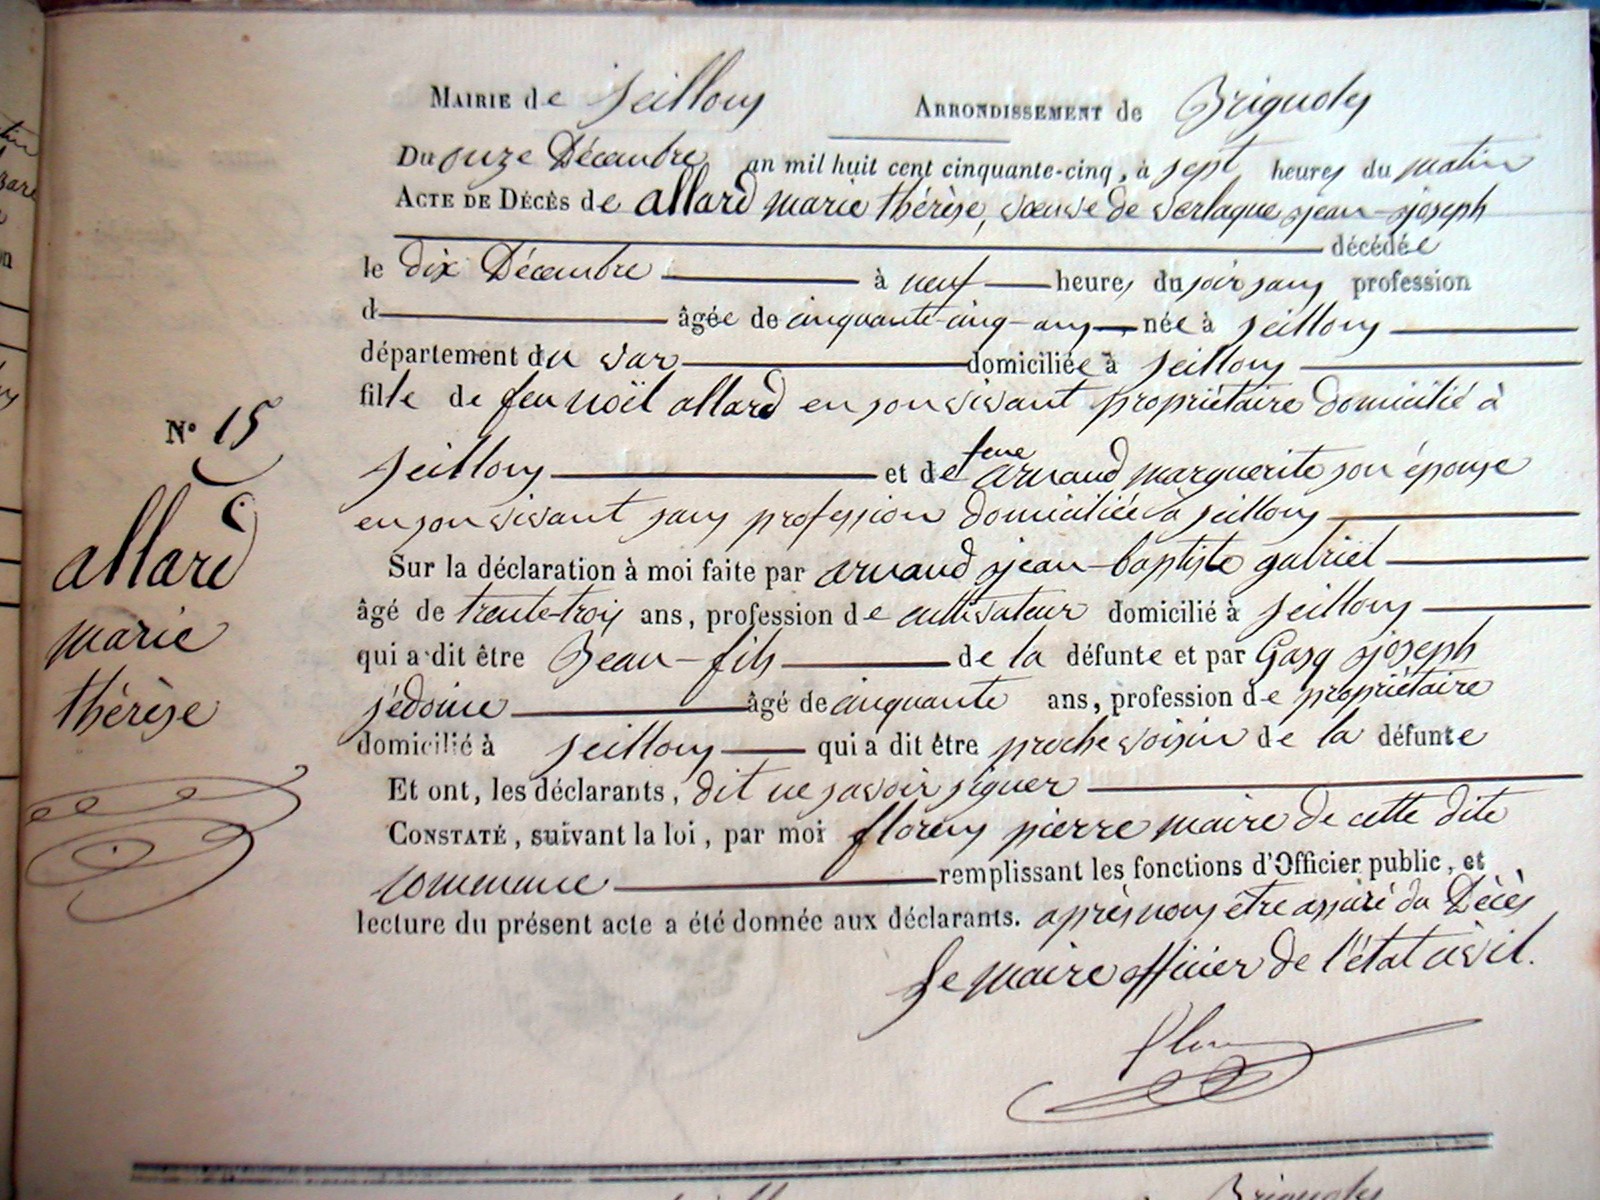 MAIRIE de Seillons ARRONDISSEMENT de Brignoles
Du onze Décembre an mil huit cent cinquante-cinq, à sept heures du matin
ACTE DE DÉCÈS de allard marie thérèse, veuve de verlaque jean-joseph
décédée
le dix Décembre à neuf heures du soir sans profession
d âgée de cinquante-cinq-ans, née à Seillons
département du var domiciliée à Seillons
fille de feu noël allard en son vivant propriétaire domicilié à
Seillons et de feue arnaud marguerite son épouse
en son vivant sans profession domiciliée à Seillons
Sur la déclaration à moi faite par arnaud jean-baptiste gabriel
âgé de trente-trois ans, profession de cultivateur domicilié à Seillons
qui a dit être Beau-fils de la défunte et par Gasq joseph
sédoine âgé de cinquante ans, profession de propriétaire
domicilié à Seillons qui a dit être proche voisin de la défunte
Et ont, les déclarants, dit ne savoir signer
CONSTATÉ, suivant la loi, par moi florens pierre maire de cette dite
commune remplissant les fonctions d'Officier public, et
lecture du présent acte a été donnée aux déclarants. après nous être assuré du Décès
Le maire officier de l'état civil.
N° 15
allard
marie
thérèse
Brignoles